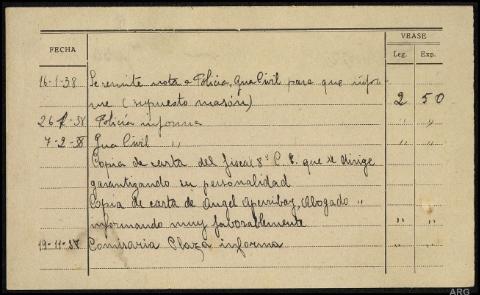 VEASE
FECHA Leg. Exp.
16-1-38 Se remite nota a Policia, Gua Civil para que infor-
me (supuesto masón) 2 50
26-1-38 Policía informa " "
7-2-38 Gua Civil " " "
Copia de carta del fiscal 8º C. E. que se dirige
garantizando su personalidad
Copia de carta de Angel Aperribay, Abogado "
informando muy favorablemente " "
19-11-38 Comisaria Plaza informa " "
ARG